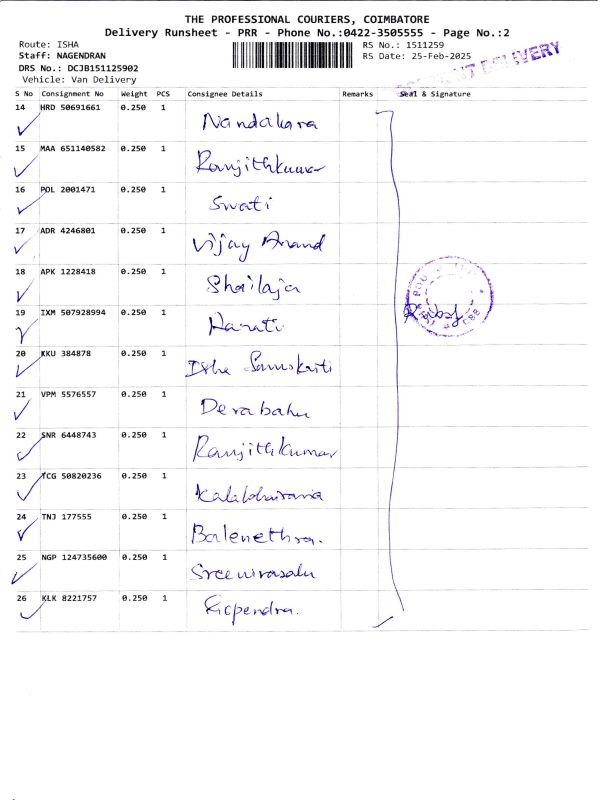 THE PROFESSIONAL COURIERS, COIMBATORE
Delivery Runsheet - PRR - Phone No.:0422-3505555 - Page No.:2
Route: ISHA
RS No.: 1511259
Staff: NAGENDRAN
RS Date: 25-Feb-2025
DRS No.: DCJB151125902
Vehicle: Van Delivery
DELIVERY
S No Consignment No Weight PCS Consignee Details Remarks Seal & Signature
14 HRD 50691661 0.250 1 Nandakara
15 MAA 651140582 0.250 1 Ranjithkumar
16 POL 2001471 0.250 1 Swati
17 ADR 4246801 0.250 1 Vijay Anand
18 APK 1228418 0.250 1 Shailaja
19 IXM 507928994 0.250 1 Harati
20 KKU 384878 0.250 1 Isha Samskriti
21 VPM 5576557 0.250 1 Devabahu
22 SNR 6448743 0.250 1 Ranjithkumar
23 TCG 50820236 0.250 1 Kalabhairava
24 TNJ 177555 0.250 1 Balenethra.
25 NGP 124735600 0.250 1 Sreenivasalu
26 KLK 8221757 0.250 1 Gopendra.